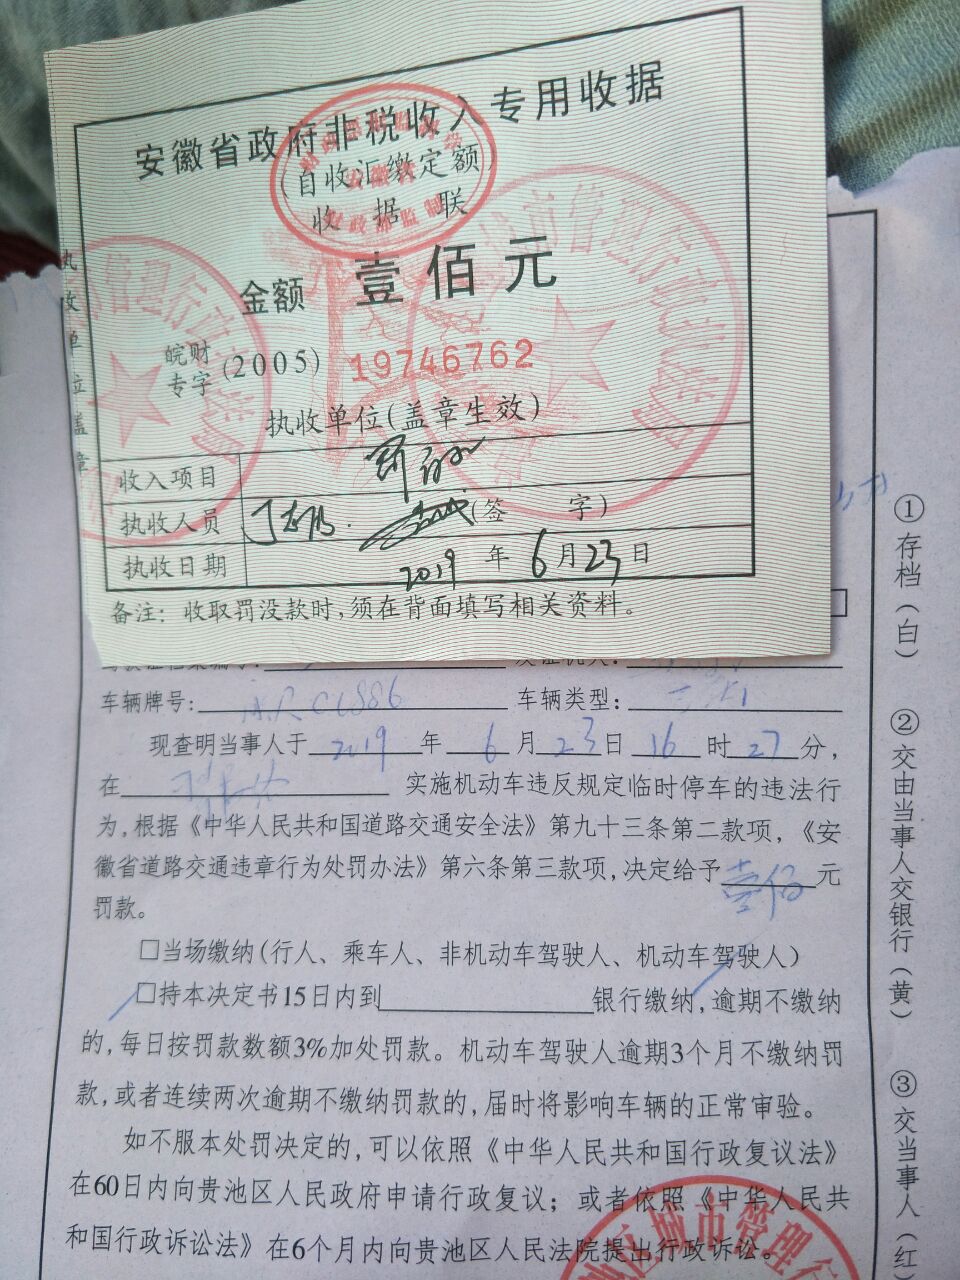 安徽省政府非税收入专用收据
(自收汇缴定额)
收据联
金额 壹佰元
皖财
专字 (2005) 19746762
执收单位(盖章生效)
执收单位盖章
收入项目
执收人员 (签 字)
执收日期 2019 年 6月23日
备注：收取罚没款时，须在背面填写相关资料。
车辆牌号: 车辆类型:
现查明当事人于 2019 年 6 月 23 日 16 时 27 分,
在 实施机动车违反规定临时停车的违法行
为,根据《中华人民共和国道路交通安全法》第九十三条第二款项,《安
徽省道路交通违章行为处罚办法》第六条第三款项,决定给予 壹佰 元
罚款。
□当场缴纳(行人、乘车人、非机动车驾驶人、机动车驾驶人)
□持本决定书15日内到 银行缴纳,逾期不缴纳
的,每日按罚款数额3%加处罚款。机动车驾驶人逾期3个月不缴纳罚
款,或者连续两次逾期不缴纳罚款的,届时将影响车辆的正常审验。
如不服本处罚决定的,可以依照《中华人民共和国行政复议法》
在60日内向贵池区人民政府申请行政复议；或者依照《中华人民共
和国行政诉讼法》在6个月内向贵池区人民法院提出行政诉讼。
①存档(白)
②交由当事人交银行(黄)
③交当事人(红
城市管理行